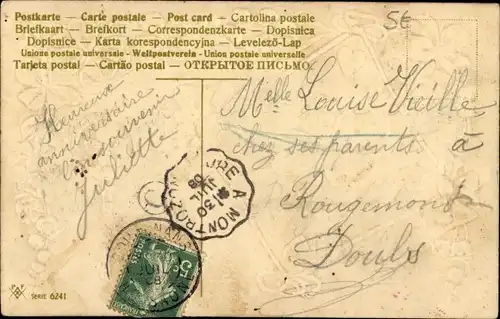 Postkarte — Carte postale — Post card — Cartolina postale
Briefkaart — Brefkort — Correspondenzkarte — Dopisnica
Dopisnice — Karta korespondencyjna — Levelező-Lap
Unione postale universale - Weltpostverein - Union postale universelle
Tarjeta postal — Cartão postal — ОТКРЫТОЕ ПИСЬМО.
5E
Heureux
anniversaire
souvenir
Juliette
Melle Louise Vieille
chez ses parents à
Rougemont
Doubs
A MONTBOZON
30
JUIL
09
5c
SERIE 6241